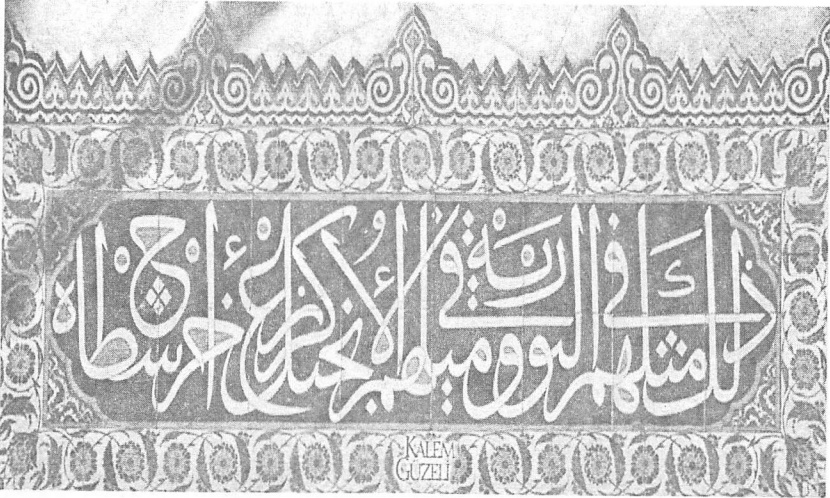 ذلك مثلهم في التورية ومثلهم في الإنجيل كزرع أخرج شطأه
KALEM
GUZELİ